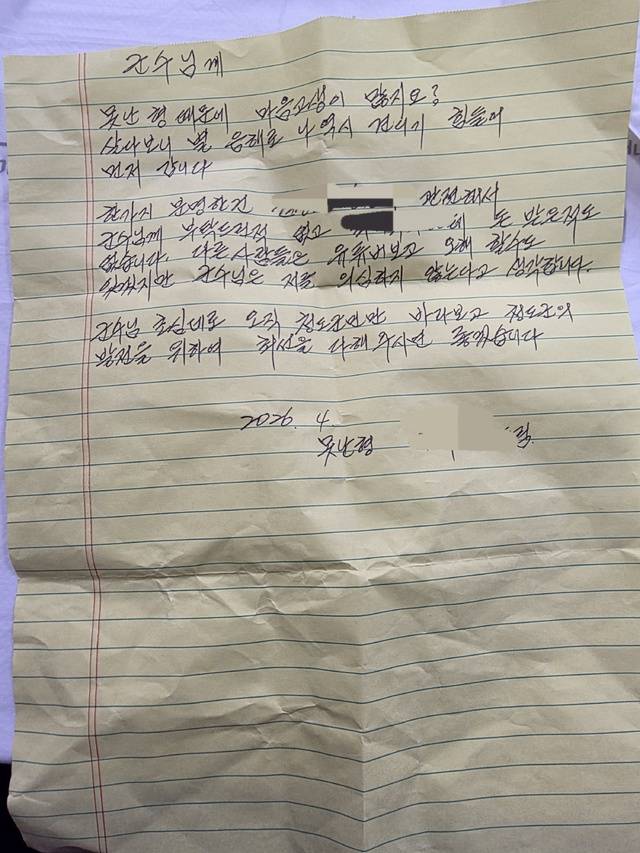 군수님께
못난 형 때문에 마음고생이 많지요?
살다보니 별 음해로 나 역시 견디기 힘들어
먼저 갑니다
한가지 분명한건 관련해서
군수님께 부탁드린적 없고 돈 받은적도
없습니다. 다른사람들은 유튜버보고 오해 할수도
있겠지만 군수님은 저를 의심하지 않는다고 생각합니다.
군수님 초심대로 오직 청도군민만 바라보고 청도군의
발전을 위하여 최선을 다해주시면 좋겠습니다
2026. 4.
못난형 드림.